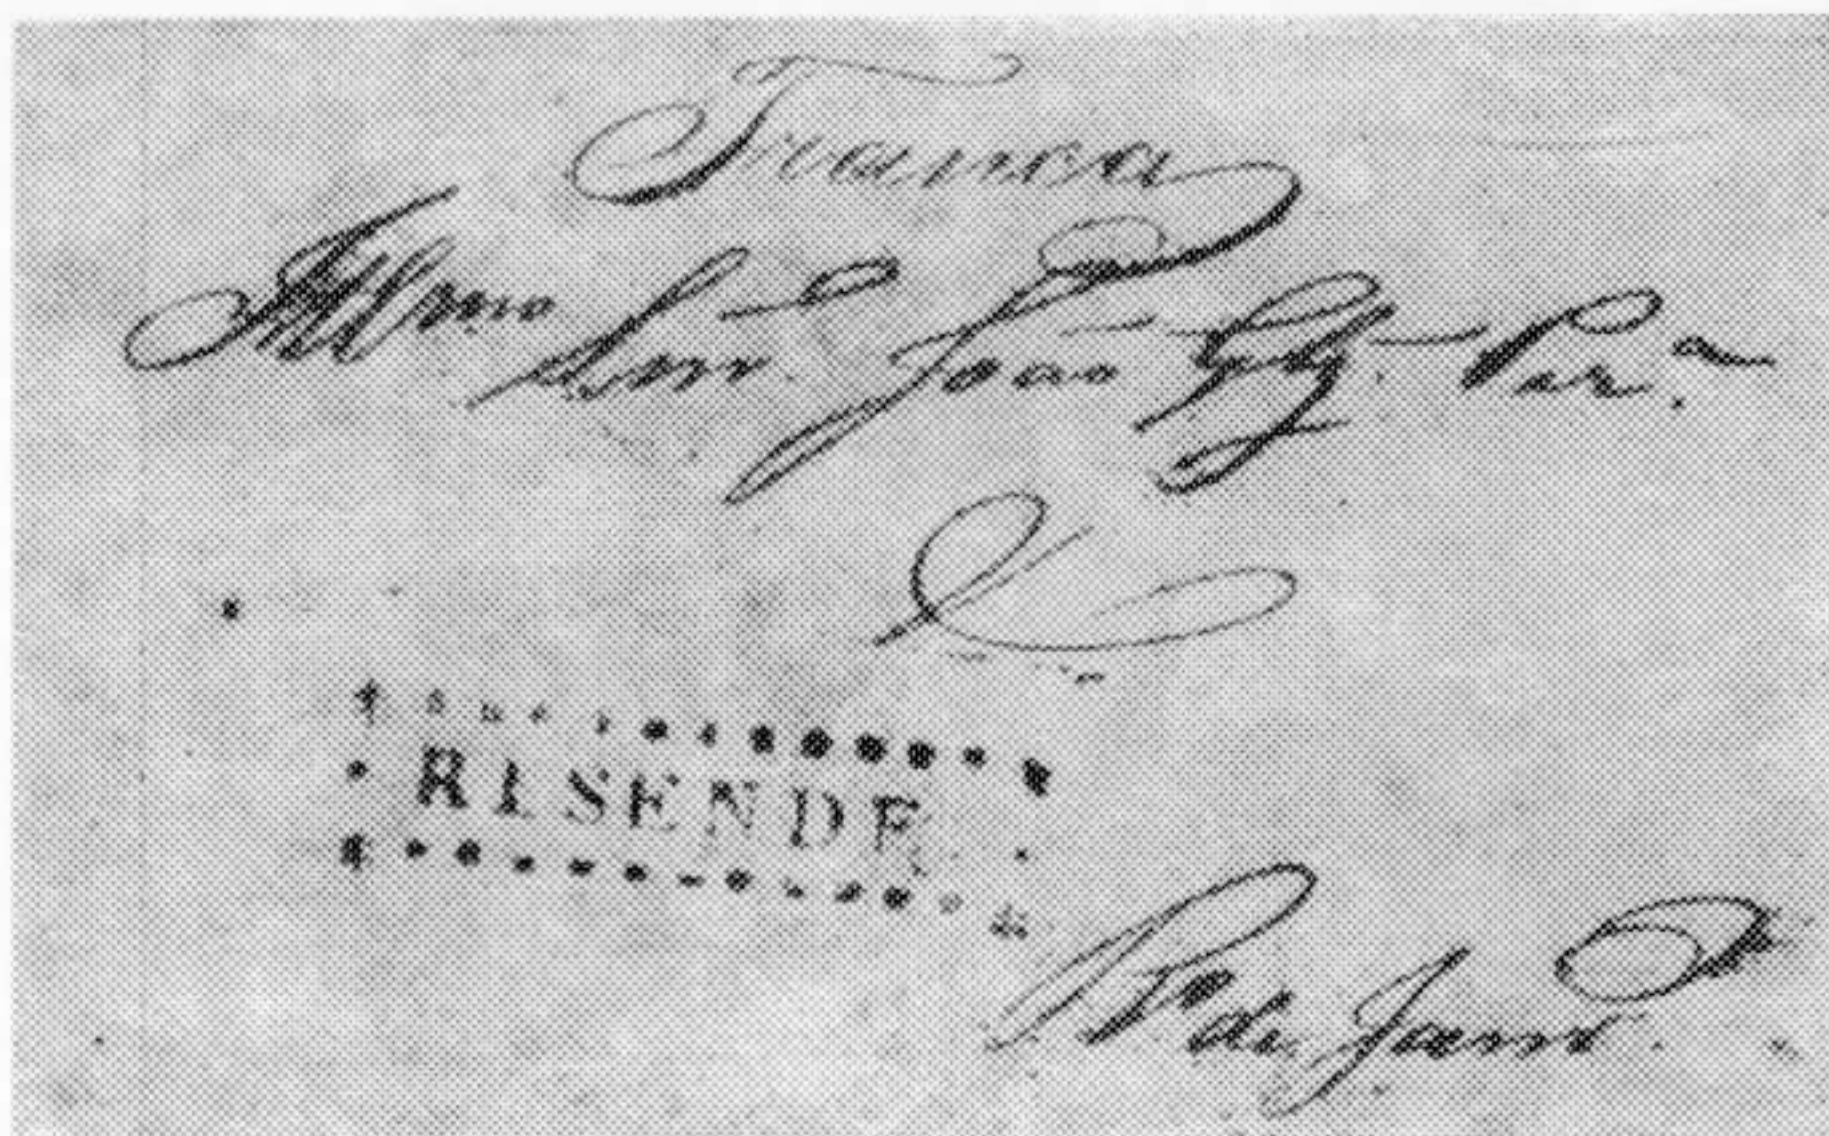 Franca
Illmo Senr. João Glz. Per.a
RESENDE
Rº de Janro.